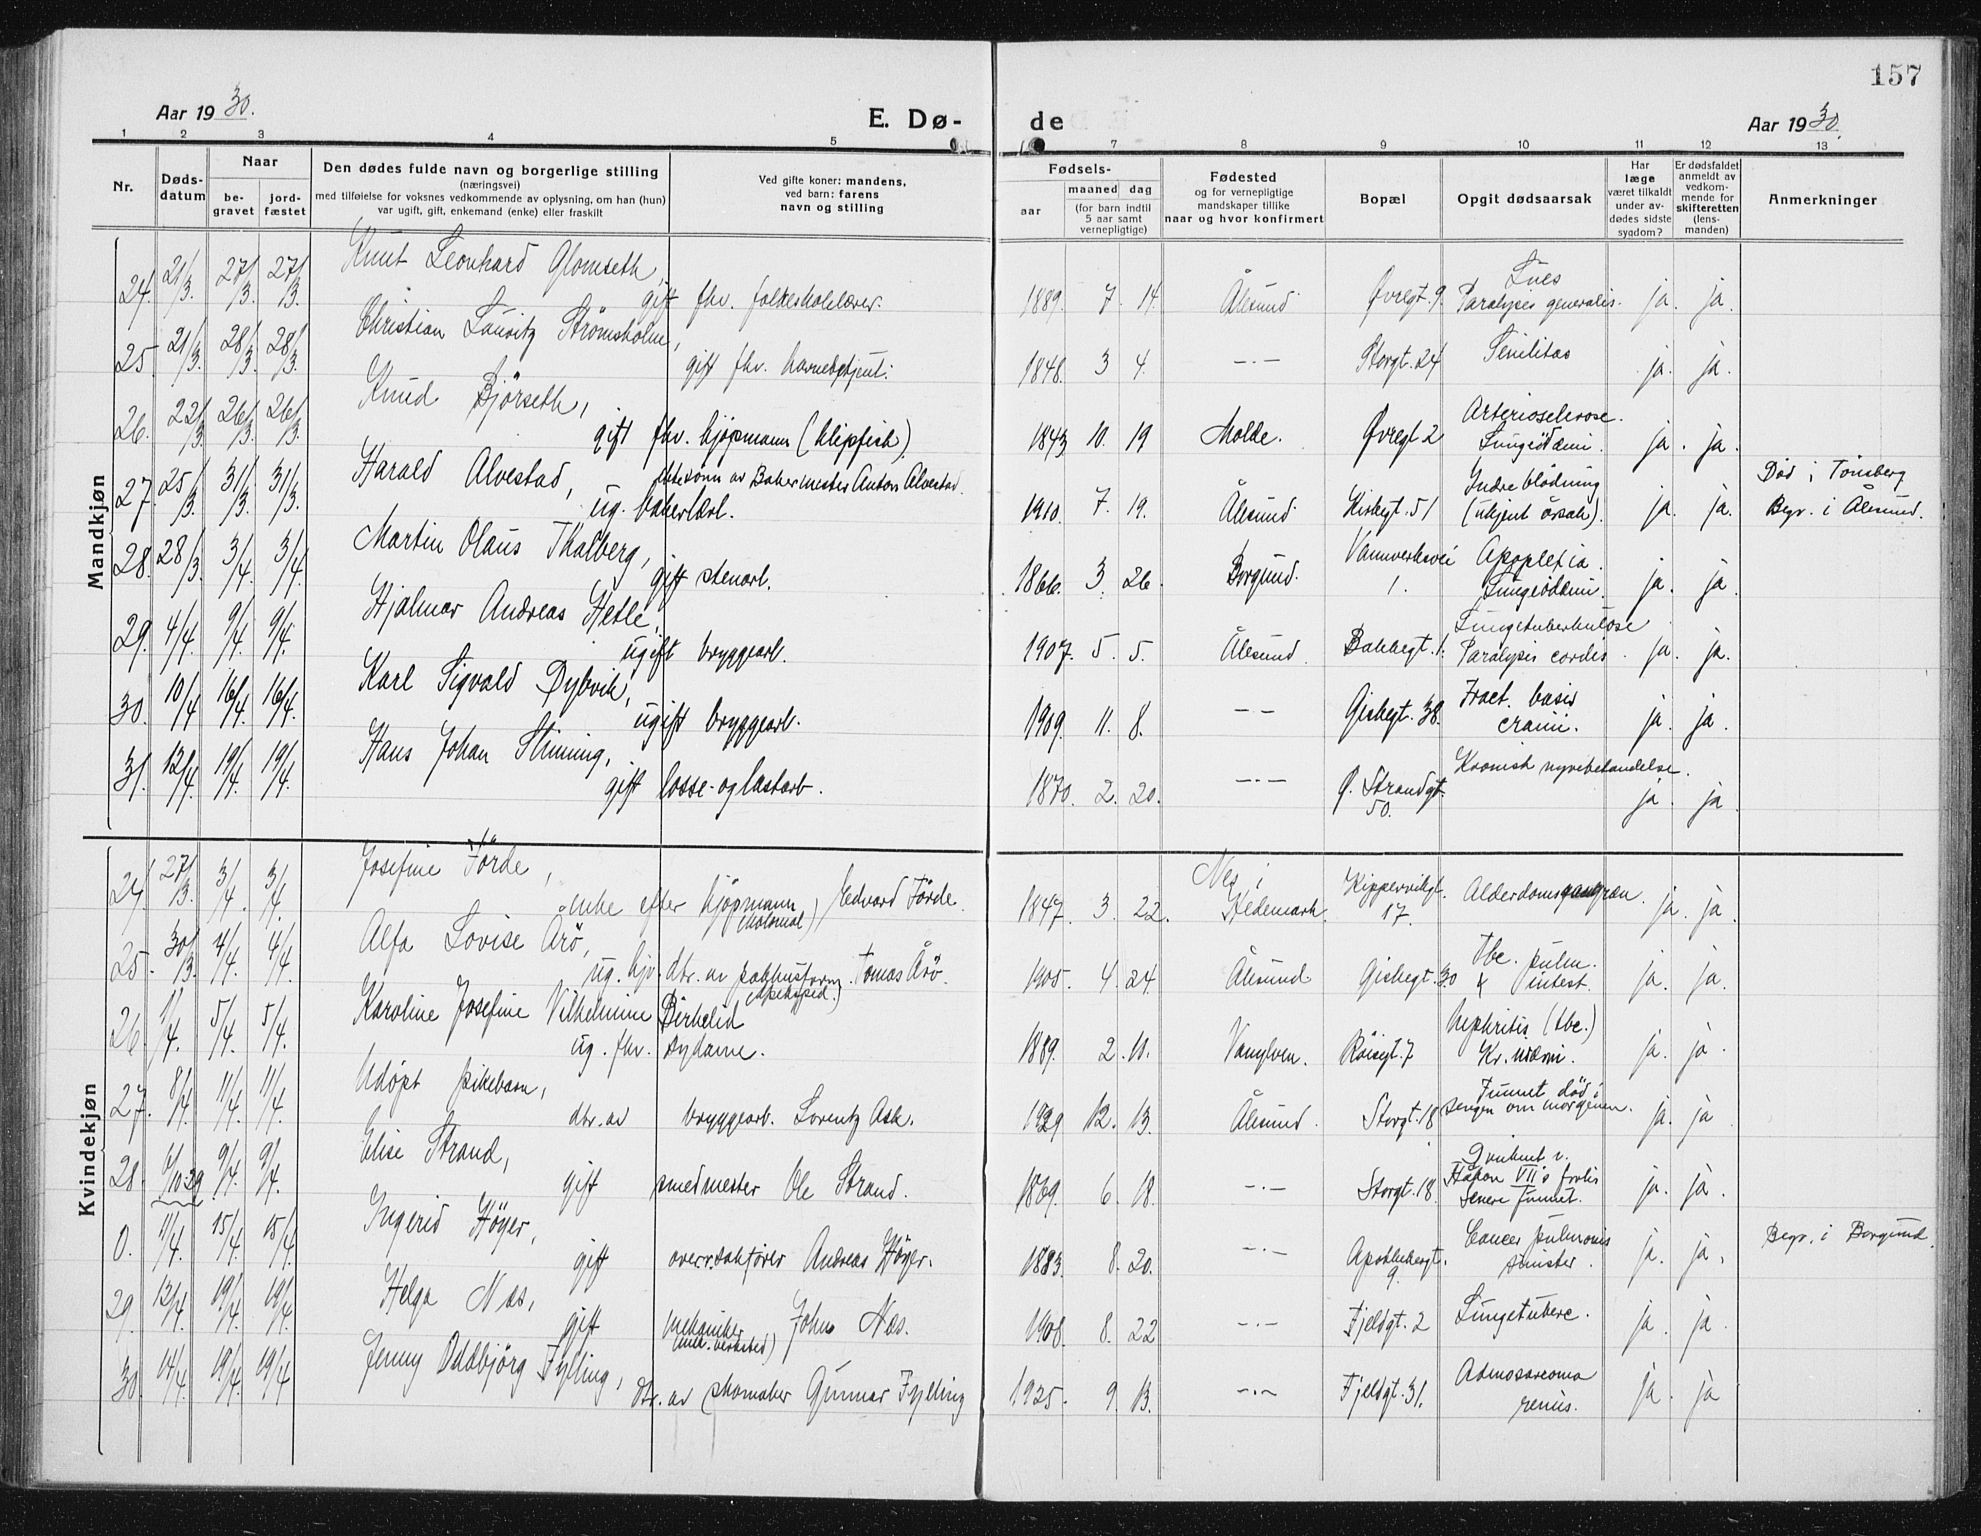 157
Aar 1930.
E. Dø- de
Aar 1930.
1 2 3 4 5 7 8 9 10 11 12 13
Nr.
Døds-
datum
Naar
be-
gravet
jord-
fæstet
Den dødes fulde navn og borgerlige stilling
(næringsvei)
med tilføielse for voksnes vedkommende av oplysning, om han (hun)
var ugift, gift, enkemand (enke) eller fraskilt
Ved gifte koner: mandens,
ved barn: farens
navn og stilling
Fødsels-
aar
maaned dag
(for barn indtil
5 aar samt
vernepligtige)
Fødested
og for vernepligtige
mandskaper tillike
naar og hvor konfirmert
Bopæl
Opgit dødsaarsak
Har
læge
været tilkaldt
under av-
dødes sidste
sygdom?
Er dødsfaldet
anmeldt av
vedkom-
mende for
skifteretten
(lens-
manden)
Anmerkninger
Mandkjøn
Knut Leonhard Glomseth, Lues
24. 21/3. 27/3. 27/3. gift fhv. folkeskolelærer. 1889. 7. 14. Ålesund Øvregt. 9 Paralysis generalis. ja. ja.
Christian Lauritz Strömsholm,
25 21/3. 28/3. 28/3. gift fhv. havnebetjent. 1848. 3 4. -.- Storgt. 24 Senilitas ja. ja.
Knud Björseth, Arteriosclerose.
26. 22/3 26/3. 26/3. gift fhv. kjöpmann (klipfisk) 1843 10. 19 Molde. Øvregt 2 Lungeödem. ja. ja.
Harald Alvestad, sönn av Bakermester Anton Alvestad. Indre blödning Död i Tönsberg
27. 25/3. 31/3. 31/3. ug. bakerlærl. 1910. 7. 19. Ålesund Kirkegt. 51 (ukjent årsak). ja. ja. Begr. i Ålesund.
Martin Olaus Thalberg, Vannverksvei Apoplexia.
28. 28/3. 3/4. 3/4. gift stenarb. 1866. 3. 26. Borgund. 1. Lungeödem. ja. ja
Hjalmar Andreas Hetle, Lungetuberkulose
29. 4/4. 9/4. 9/4. ugift bryggearb. 1907. 5. 5. Ålesund. Bakkegt. 1. Paralysis cordis. ja. ja.
Karl Sigvald Dybvik, Fract. basis
30. 10/4 16/4. 16/4. ugift bryggearb. 1909. 11. 8. - - Giskegt. 38. cranii. ja. ja.
Hans Johan Slinning, Kronisk nyrebetendelse.
31. 12/4. 19/4. 19/4. gift losse- og lastarb. 1870. 2. 20. -.- Ø. Strandgt. 50. ja. ja.
Kvindekjøn
Josefine Förde, Nes i Kippervikgt.
24 27/3. 3/4. 3/4. enke efter kjöpmann (kolonial) Edvard Förde. 1847. 3. 22. Hedemark. 17. Alderdomsgangræn. ja. ja.
Alfa Lovise Årö, Tbc. pulm.
25. 30/3. 4/4. 4/4. ug. hjv. dtr. av pakhusform. Tomas Årö. 1905. 4. 24. Ålesund. Giskegt. 30 & intest. ja. ja.
Karoline Josefine Vilhelmine Birkelid Nephritis (tbc.)
26. 1/4. 5/4. 5/4. ug. fhv. sydame. 1889. 2. 10. Vanylven. Röisgt. 7 Kr. uræmi. ja. ja.
Udöpt pikebarn, Funnet död i
27. 8/4. 11/4. 11/4. dtr. av bryggearb. Lorentz Ask. 1929 12. 13. Ålesund. Storgt. 18 sengen om morgenen. ja. ja
Elise Strand, Druknet v.
28. 6/10.29. 9/4. 9/4. gift smedmester Ole Strand. 1869. 6. 18. -.- Storgt. 18 Håkon VII's forlis
Senere funnet. ja. ja.
Ingerid Höyer, Cancer pulmonis
0. 11/4. 15/4. 15/4. gift overr.sakförer Andreas Höyer. 1883. 8. 20. -.- Apothekergt. 9. sinister. ja. ja. Begr. i Borgund.
Helga Næs,
29. 12/4. 19/4. 19/4. gift mekaniker (mek. verksted) John Næs. 1908. 8. 22 -.- Fjeldgt. 2 Lungetuberc. ja. ja.
Jenny Oddbjörg Fylling, Adenosarcoma
30 14/4. 19/4. 19/4 dtr. av skomaker Gunnar Fylling 1925. 9. 13. -.- Fjeldgt. 31. renis. ja. ja